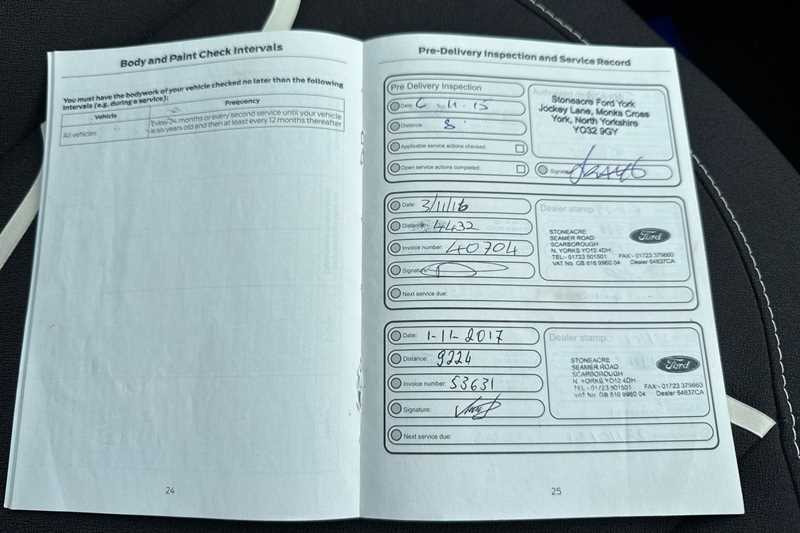 Body and Paint Check Intervals
You must have the bodywork of your vehicle checked no later than the following
intervals (e.g. during a service):
Vehicle
Frequency
All vehicles
Every 24 months or every second service until your vehicle
is six years old and then at least every 12 months thereafter
24
Pre-Delivery Inspection and Service Record
Pre Delivery Inspection
Date: 11-15
Distance: 8
Applicable service actions checked:
Open service actions completed:
Stoneacre Ford York
Jockey Lane, Monks Cross
York, North Yorkshire
YO32 9GY
Signature
Date: 3/11/16
Distance: 4432
Invoice number: 40704
Signature:
Next service due:
Dealer stamp:
STONEACRE
SEAMER ROAD
SCARBOROUGH
N. YORKS YO12 4DH
TEL:- 01723 501501 FAX:- 01723 379660
VAT No. GB 616 9960 04 Dealer 64837CA
Ford
Date: 1-11-2017
Distance: 9224
Invoice number: 53631
Signature:
Next service due:
Dealer stamp:
STONEACRE
SEAMER ROAD
SCARBOROUGH
N. YORKS YO12 4DH
TEL:- 01723 501501 FAX:- 01723 379660
VAT No. GB 616 9960 04 Dealer 64837CA
Ford
25